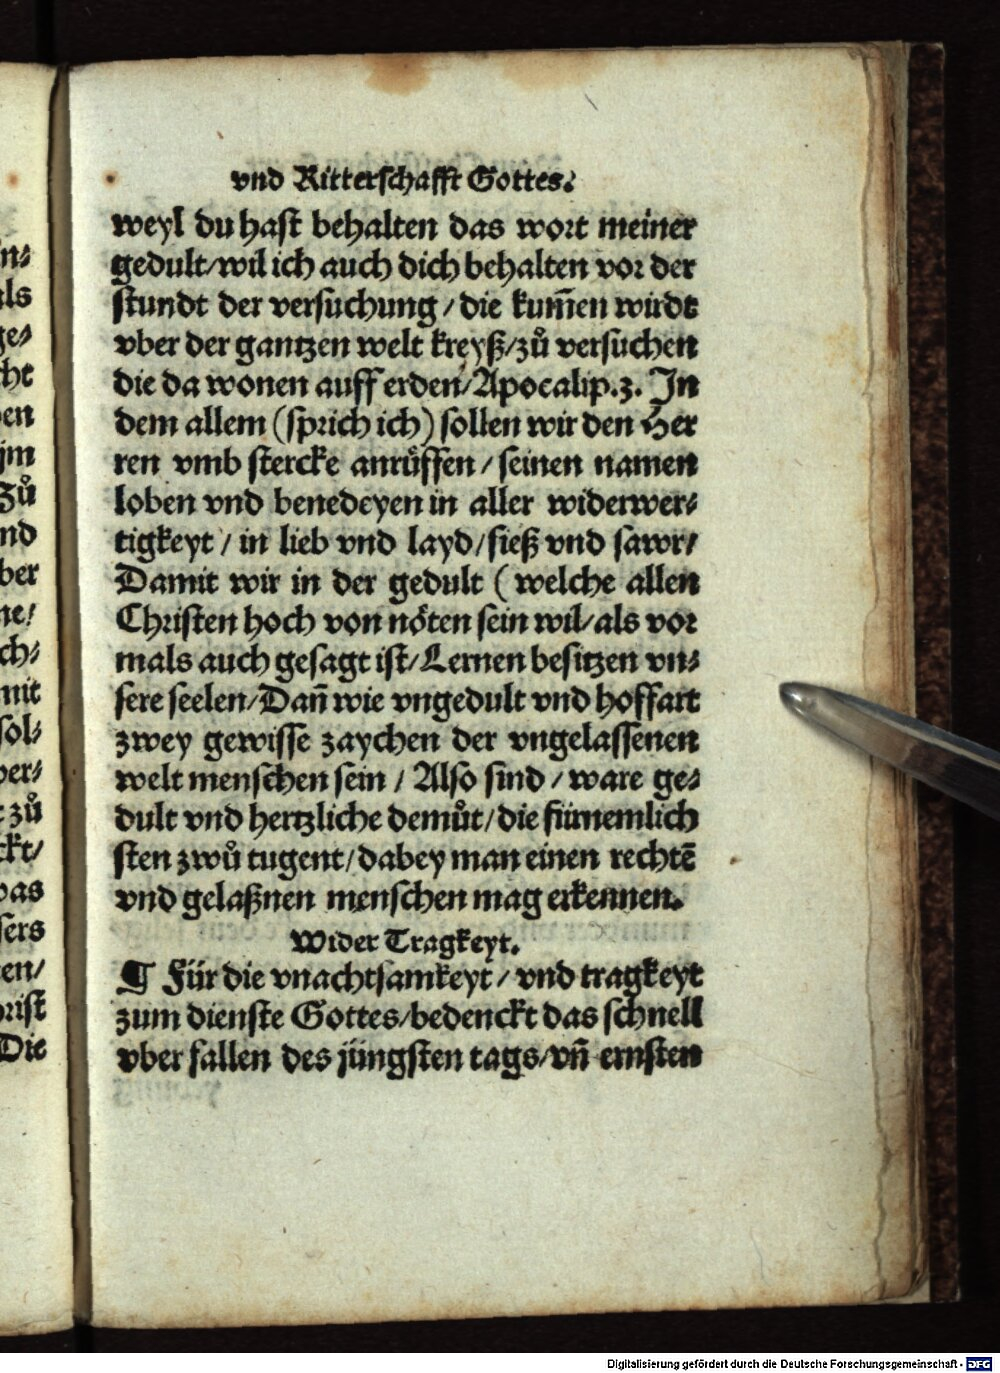 vnd Ritterschafft Gottes.
weyl du hast behalten das wort meiner
gedult/wil ich auch dich behalten vor der
stundt der versuchung/die kum̄en wirdt
vber der gantzen welt kreyß/zů versuchen
die da wonen auff erden/Apocalip.3. In
dem allem (sprich ich) sollen wir den Her
ren vmb stercke anrůffen/seinen namen
loben vnd benedeyen in aller widerwer⸗
tigkeyt/in lieb vnd layd/sieß vnd sawr/
Damit wir in der gedult (welche allen
Christen hoch von nöten sein wil/als vor
mals auch gesagt ist/Lernen besitzen vn⸗
sere seelen/Dañ wie vngedult vnd hoffart
zwey gewisse zaychen der vngelassenen
welt menschen sein/Also sind/ware ge⸗
dult vnd hertzliche demůt/die fürnemlich
sten zwů tugent/dabey man einen rechtē
vnd gelaßnen menschen mag erkennen.
Wider Tragkeyt.
¶ Für die vnachtsamkeyt/vnd tragkeyt
zum dienste Gottes/bedenckt das schnell
vber fallen des jüngsten tags/vñ ernsten
n⸗
als
ge⸗
cht
en
jm
Zů
nd
ber
ne/
ch⸗
mit
sol⸗
ver⸗
t zů
ckt/
was
sers
en/
rist
Die
Digitalisierung gefördert durch die Deutsche Forschungsgemeinschaft - DFG